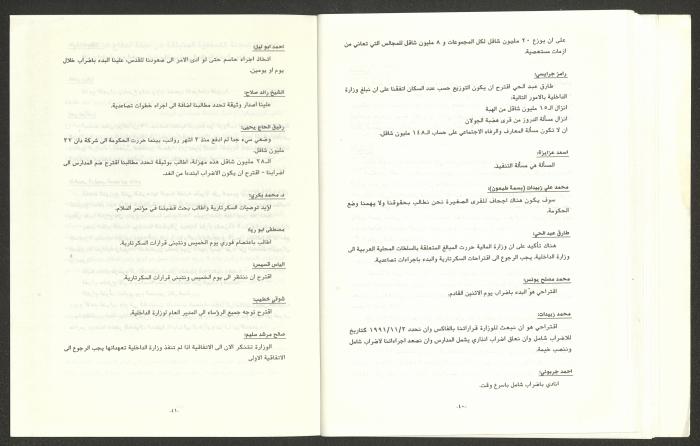 على ان يوزع ٢٠ مليون شاقل لكل المجموعات و ٨ مليون شاقل للمجالس التي تعاني من
ازمات مستعصية.
رامز جرايسي:
طارق عبد الحي اقترح ان يكون التوزيع حسب عدد السكان اتفقنا على ان نبلغ وزارة
الداخلية بالامور التالية:
انزال الـ١٥ مليون شاقل من الهبة
انزال مسألة الدروز من قرى هضبة الجولان
ان لا تكون مسألة المعارف والرفاه الاجتماعي على حساب الـ١٤٨ مليون شاقل.
اسعد عزايزة:
المسألة هي مسألة التنفيذ.
محمد علي زبيدات (بسمة طبعون):
سوف يكون هناك اجحاف للقرى الصغيرة نحن نطالب بحقوقنا ولا يهمنا وضع
الحكومة.
طارق عبد الحي:
هناك تأكيد على ان وزارة المالية حررت المبالغ المتعلقة بالسلطات المحلية العربية الى
وزارة الداخلية. يجب الرجوع الى اقتراحات السكرتارية والبدء باجراءات تصاعدية.
محمد مصلح يونس:
اقتراحي هو البدء باضراب يوم الاثنين القادم.
محمد زبيدات:
اقتراحي هو ان نبعث للوزارة قراراتنا بالفاكس وان نحدد ١٩٩١/١١/٣ كتاريخ
للاضراب شامل وان نعلق اضراب انذاري يشمل المدارس وان نصعد اجراءاتنا لاضراب شامل
وننصب خيمة.
احمد جربوني:
انادي باضراب شامل باسرع وقت.
-٤٠-
احمد ابو ليل:
اتخاذ اجراء حاسم حتى لو ادى الامر الى صعودنا للقدس، علينا البدء باضراب خلال
يوم او يومين.
الشيخ رائد صلاح:
علينا اصدار وثيقة تحدد مطالبنا اضافة الى اجراء خطوات تصاعدية.
رفيق الحاج يحيى:
وضعي سيء جدا لم ادفع منذ ٣ اشهر رواتب، بينما حررت الحكومة الى شركة دان ٣٢
مليون شاقل.
الـ٢٨ مليون شاقل هذه مهزلة، اطالب بوثيقة تحدد مطالبنا اقترح ضم المدارس الى
اضرابنا - اقترح ان يكون الاضراب ابتدءا من الغد.
د. محمد بكري:
اؤيد توصيات السكرتارية واطالب بحث قضيتنا في مؤتمر السلام.
مصطفى ابو ريا:
اطالب باعتصام فوري يوم الخميس ونتبنى قرارات السكرتارية.
الياس قسيس:
اقترح ان ننتظر الى يوم الخميس ونتبنى قرارات السكرتارية.
شوقي خطيب:
اقترح توجه جميع الرؤساء الى المدير العام لوزارة الداخلية.
صالح مرشد ملحم:
الوزارة تتنكر الان الى الاتفاقية اذا لم تنفذ وزارة الداخلية تعهداتها يجب الرجوع الى
الاتفاقية الاولى
-٤١-